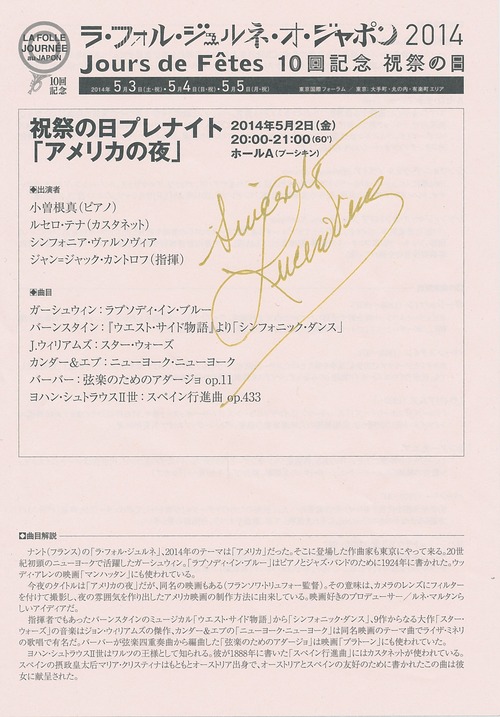 LA FOLLE
JOURNÉE
au JAPON
10回
記念
ラ・フォル・ジュルネ・オ・ジャポン 2014
Jours de Fêtes 10回記念 祝祭の日
2014年 5月3日(土・祝)・5月4日(日・祝)・5月5日(月・祝) 東京国際フォーラム/東京:大手町・丸の内・有楽町エリア
祝祭の日プレナイト
「アメリカの夜」
2014年5月2日(金)
20:00-21:00(60')
ホールA(プーシキン)
Sincerely
Lucero Tena
出演者
小曽根真(ピアノ)
ルセロ・テナ(カスタネット)
シンフォニア・ヴァルソヴィア
ジャン=ジャック・カントロフ(指揮)
曲目
ガーシュウィン:ラプソディ・イン・ブルー
バーンスタイン:『ウエスト・サイド物語』より「シンフォニック・ダンス」
J.ウィリアムズ:スター・ウォーズ
カンダー&エブ:ニューヨーク・ニューヨーク
バーバー:弦楽のためのアダージョ op.11
ヨハン・シュトラウスII世:スペイン行進曲 op.433
曲目解説
ナント(フランス)の「ラ・フォル・ジュルネ」、2014年のテーマは「アメリカ」だった。そこに登場した作曲家も東京にやって来る。20世
紀初頭のニューヨークで活躍したガーシュウィン。「ラプソディ・イン・ブルー」はピアノとジャズ・バンドのために1924年に書かれた。ウッ
ディ・アレンの映画「マンハッタン」にも使われている。
今夜のタイトルは「アメリカの夜」だが、同名の映画もある(フランソワ・トリュフォー監督)。その意味は、カメラのレンズにフィルター
を付けて撮影し、夜の雰囲気を作り出したアメリカ映画の制作方法に由来している。映画好きのプロデューサー/ルネ・マルタンら
しいアイディアだ。
指揮者でもあったバーンスタインのミュージカル「ウエスト・サイド物語」から「シンフォニック・ダンス」、9作からなる大作「スター・
ウォーズ」の音楽はジョン・ウィリアムズの傑作、カンダー&エブの「ニューヨーク・ニューヨーク」は同名映画のテーマ曲でライザ・ミネリ
の歌唱で有名だ。バーバーが弦楽四重奏曲から編曲した「弦楽のためのアダージョ」は映画「プラトーン」にも使われていた。
ヨハン・シュトラウスII世はワルツの王様として知られる。彼が1888年に書いた「スペイン行進曲」にはカスタネットが使われている。
スペインの摂政皇太后マリア・クリスティナはもともとオーストリア出身で、オーストリアとスペインの友好のために書かれたこの曲は彼
女に献呈された。